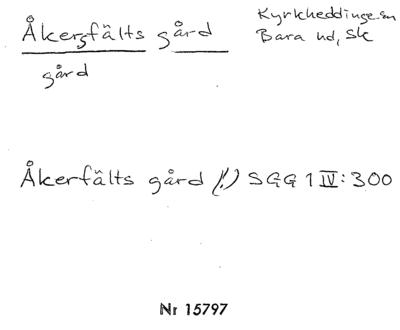 Åkersfälts gård
Kyrkheddinge sn
Bara hd, Sk
gård
Åkerfälts gård (!) SGG 1 IV: 300
Nr 15797